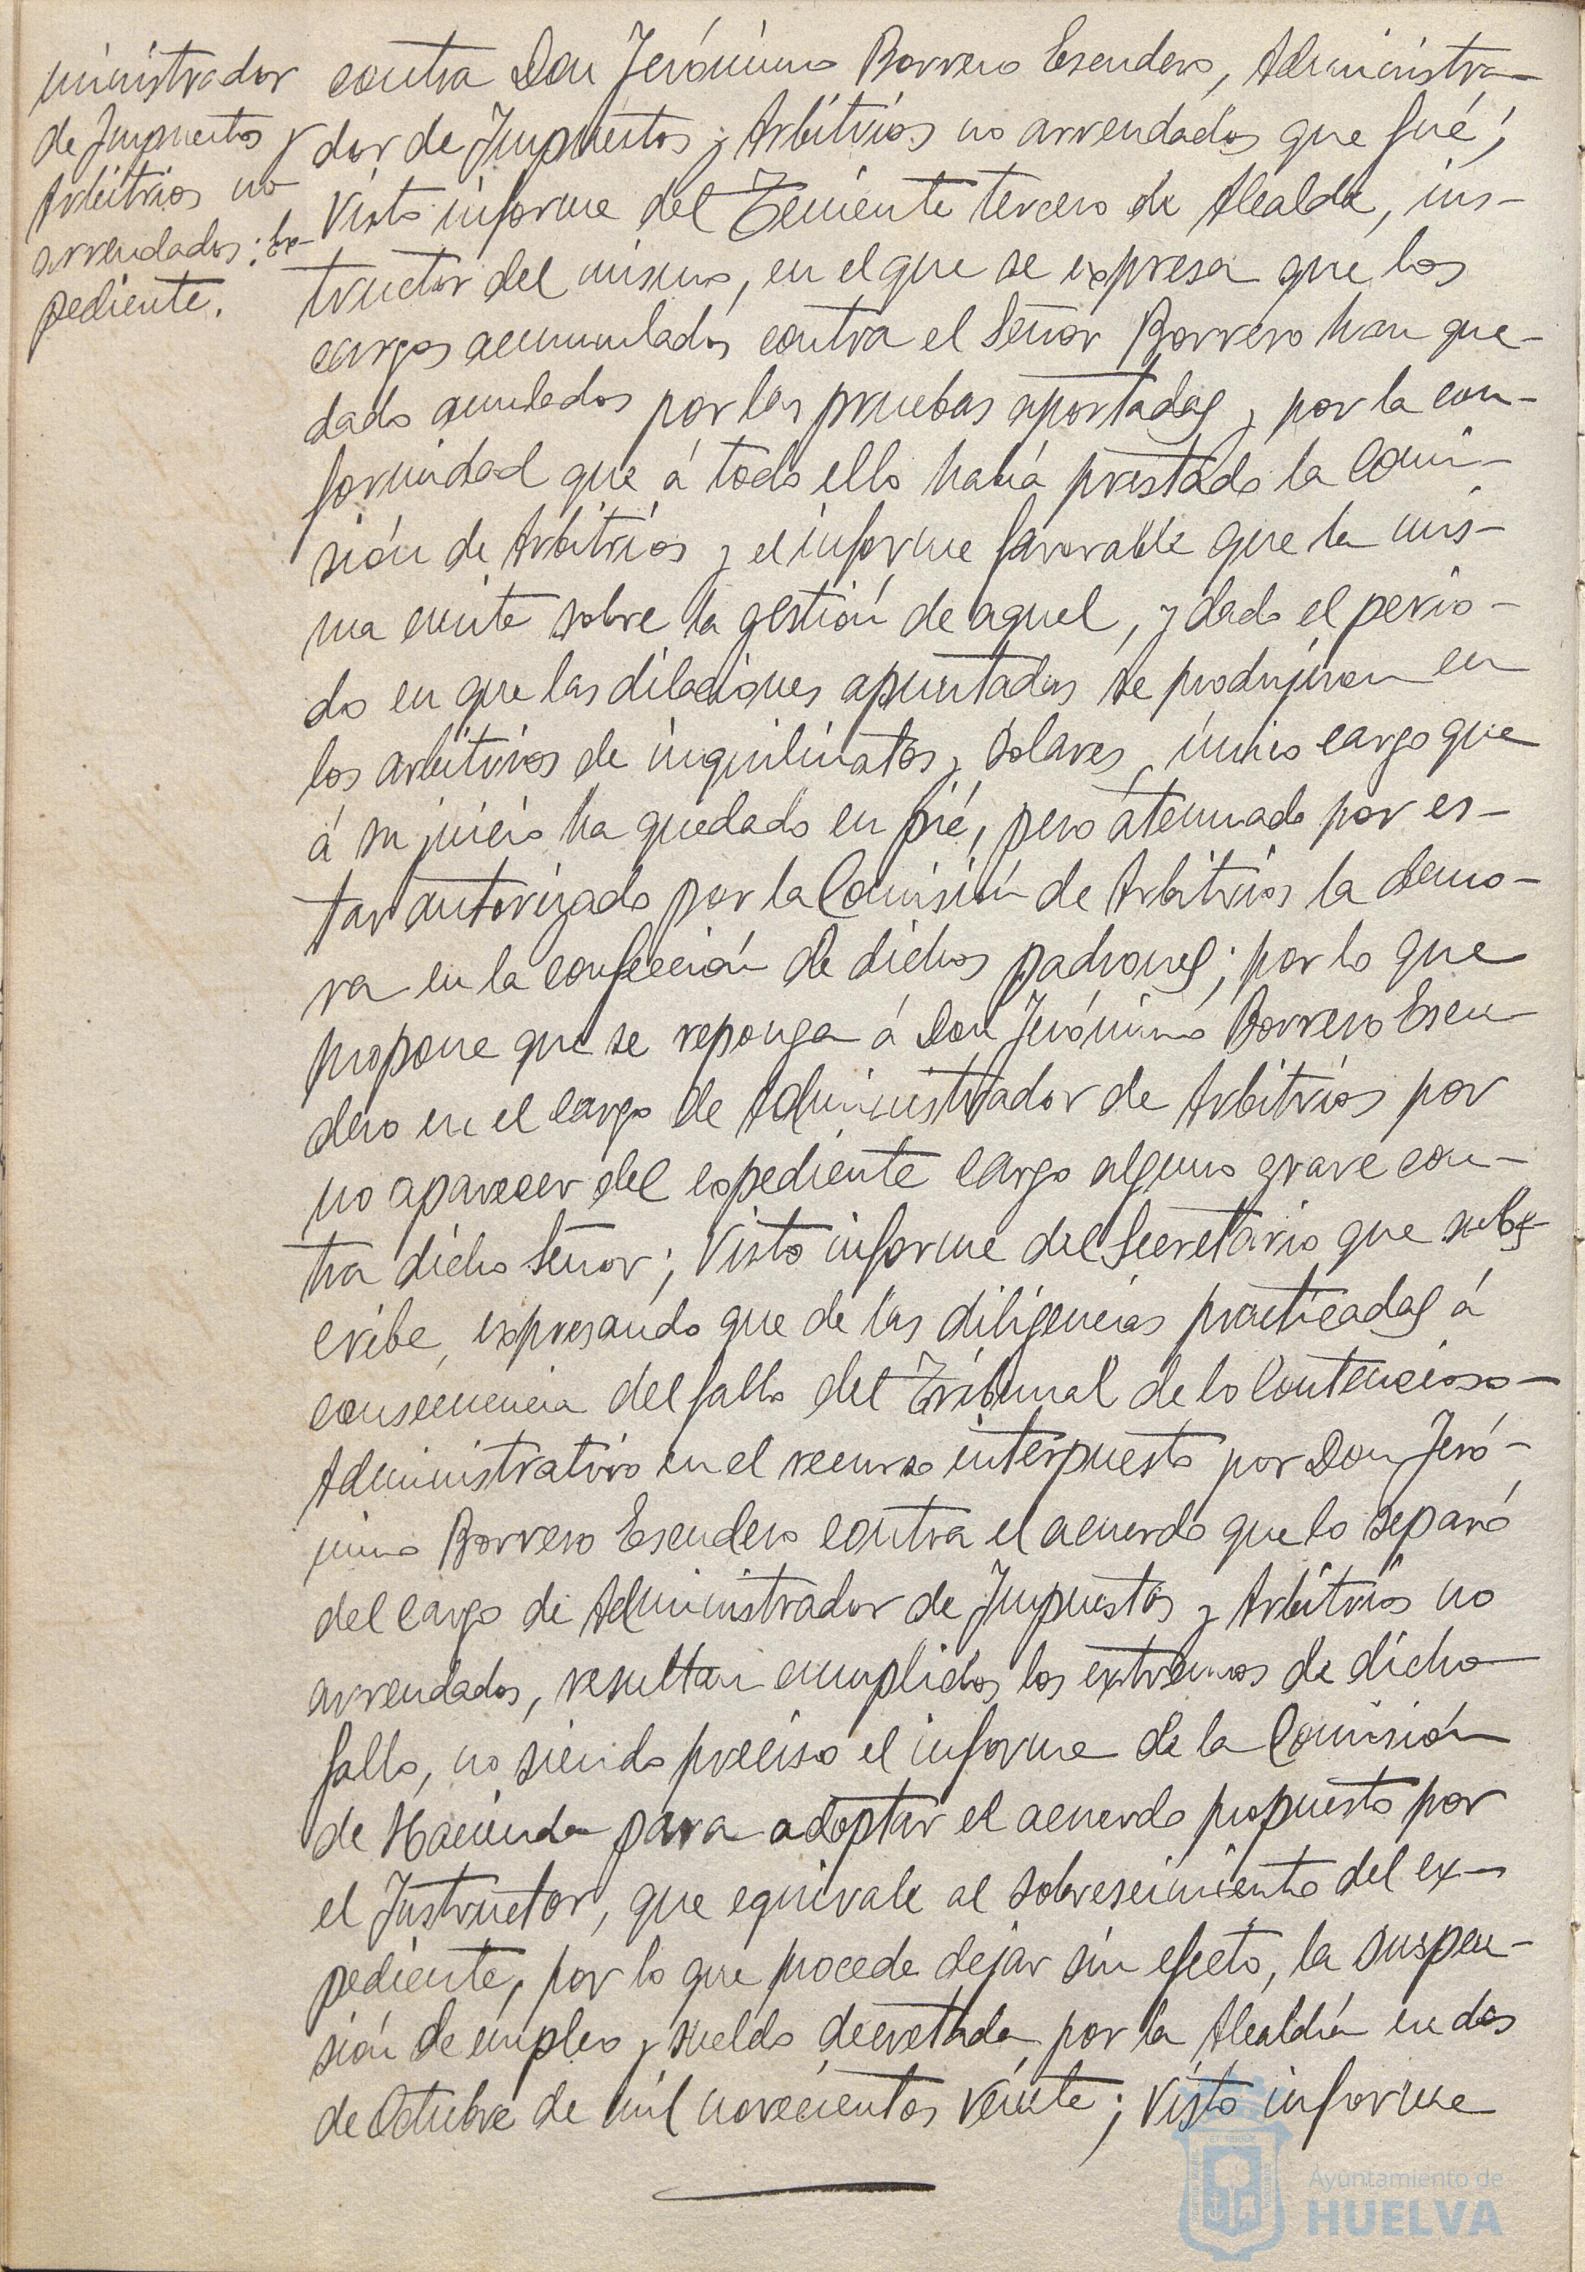 ministrador
de Impuestos y
Arbitrios no
arrendados: Ex-
pediente.
contra Don Jerónimo Borrero Escudero, Administra-
dor de Impuestos y Arbitrios no arrendados que fué;
Visto informe del Teniente tercero de Alcalde, ins-
tructor del mismo, en el que se expresa que los
cargos acumulados contra el Señor Borrero han que-
dado anulados por las pruebas aportadas y por la con-
formidad que á todo ello había prestado la Comi-
sión de Arbitrios y el informe favorable que la mis-
ma emite sobre la gestión de aquel, y dado el perio-
do en que las dilaciones apuntadas se produjeron en
los arbitrios de inquilinatos y solares, único cargo que
á su juicio ha quedado en pié, pero atenuado por es-
tar autorizado por la Comisión de Arbitrios la demo-
ra en la confección de dichos padrones; por lo que
propone que se reponga á Don Jerónimo Borrero Escu-
dero en el cargo de Administrador de Arbitrios por
no aparecer del expediente cargo alguno grave con-
tra dicho Señor; Visto informe del Secretario que subs-
cribe, expresando que de las diligencias practicadas á
consecuencia del fallo del Tribunal de lo Contencioso-
Administrativo en el recurso interpuesto por Don Jeró-
nimo Borrero Escudero contra el acuerdo que lo separó
del cargo de Administrador de Impuestos y Arbitrios no
arrendados, resultan cumplidos los extremos de dicho
fallo, no siendo preciso el informe de la Comisión
de Hacienda para adoptar el acuerdo propuesto por
el Instructor, que equivale al sobreseimiento del ex-
pediente, por lo que procede dejar sin efecto, la suspen-
sión de empleo y sueldo decretada por la Alcaldía en dos
de Octubre de mil novecientos veinte; Visto informe
Ayuntamiento de
HUELVA